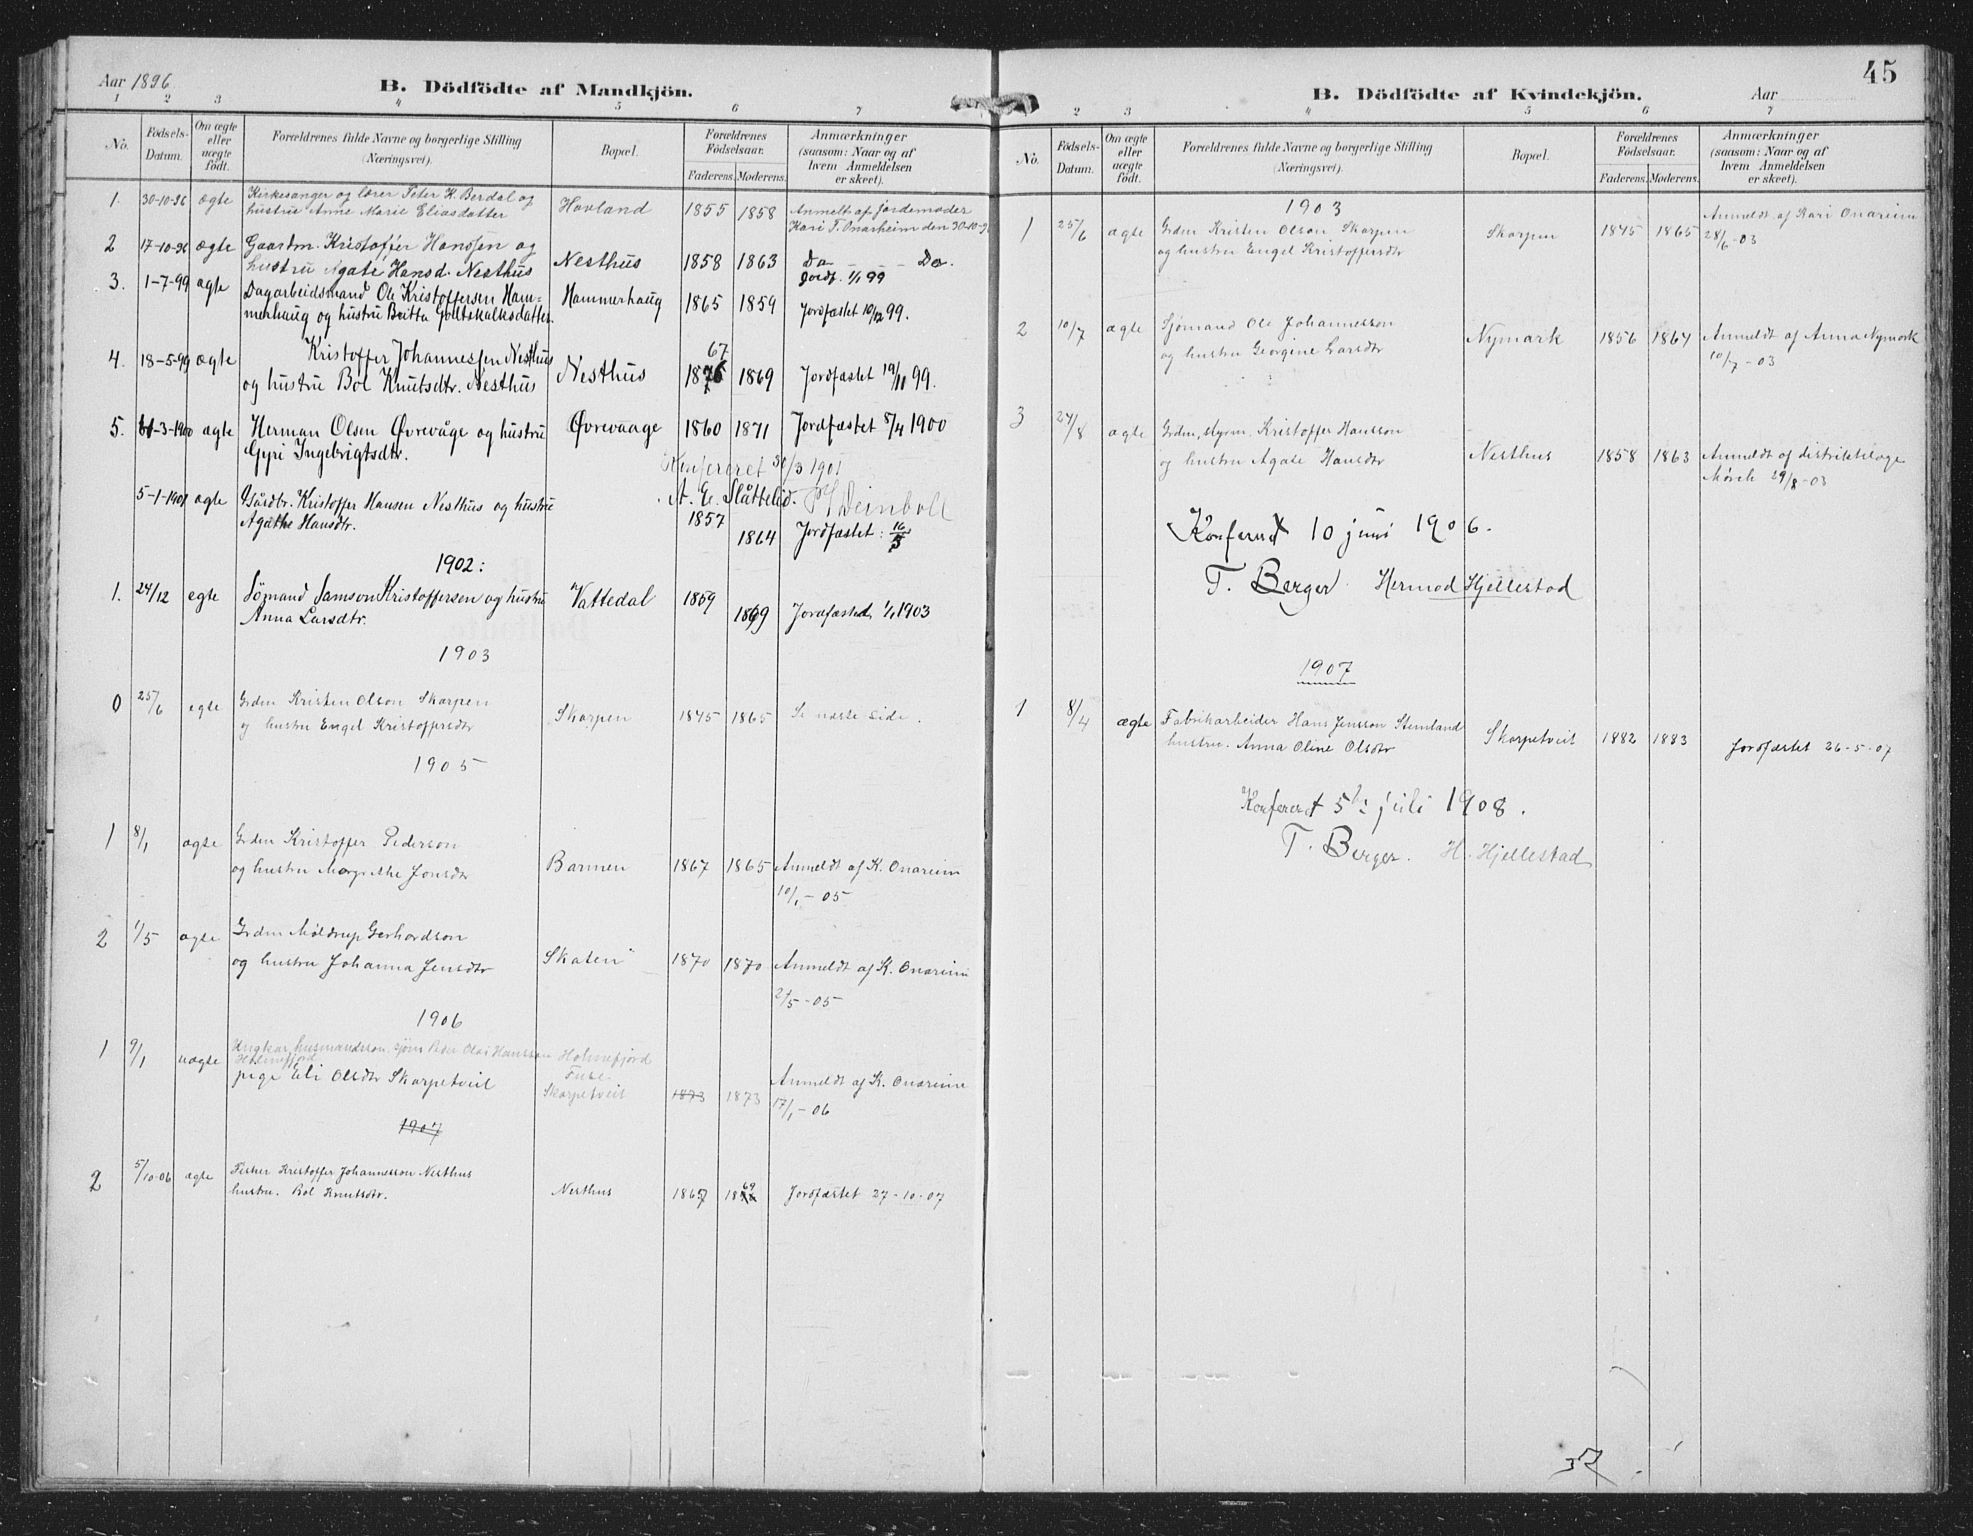 Aar 1896
B. Dödfödte af Mandkjön.
1 2 3 4 5 6 7
No.
Födsels-Datum.
Om ægte eller uægte födt.
Forældrenes fulde Navne og borgerlige Stilling (Næringsvei).
Bopæl.
Forældrenes Födselsaar.
Faderens. Moderens.
Anmærkninger (saasom: Naar og af hvem Anmeldelsen er skeet).
1. 30-10-96 ægte Kirkesanger og lærer Peter K. Berdal og Hovland 1855 1858 Anmelt af Jordemoder
hustru Anne Marie Eliasdatter Kari T. Onarheim den 30-10-96
2 17-10-96 ægte Gaardm. Kristoffer Hanssen og Nesthus 1858 1863 Do - - Do.
hustru Agate Hansd. Nesthus Jordf. 1/1 99
3. 1-7-99 ægte Dagarbeidsmand Ole Kristoffersen Ham- Hammerhaug 1865 1859 Jordfæstet 10/12 99.
merhaug og hustru Britta Gottskalksdatter.
4. 18-5-99 ægte Kristoffer Johannessen Nesthus Nesthus 67 1876 1869 Jordfæstet 19/11 99.
og hustru Bol Knutsdtr. Nesthus
5. 11-3-1900 ægte Herman Olsen Øvrevåge og hustru Øvrevaage 1860 1871 Jordfæstet 8/4 1900
Gyri Ingebrigtsdtr.
Konfereret 30/3 1901
A. E. Slåttelid. Weinholt
5-1-1901 ægte Gårdbr. Kristoffer Hansen Nesthus og hustru 1857 1864 Jordfæstet: 16/3
Agathe Hansdtr.
1902:
1. 24/12 egte Sömand Samson Kristoffersen og hustru Vattedal 1859 1869 Jordfæstet 1/1 1903
Anna Larsdtr.
1903
0 25/6 egte Grdm Kristen Olson Skorpen Skorpen 1845 1865 Se næste side.
og hustru Engel Kristoffersdtr
1905
1 8/1 ægte Grdm Kristoffer Pederson Barmen 1867 1865 Anmeldt af K. Onareim
og hustru Margrethe Jonsdtr 10/1-05
2 1/5 ægte Grdm Möldrup Gerhardson Skaten 1870 1870 Anmeldt af K. Onareim
og hustru Johanna Jensdtr 2/5-05
1906
1 9/1 uægte Ungkar, husmandssön, sjöm Peder Olai Hansson Holmefjord
Holmefjord Fuse
pige Eli Olsdtr Skorpetveit Skorpetveit 1873 1873 Anmeldt af K. Onareim
17/1-06
1907
2 5/10-06 ægte Fisker Kristoffer Johannesson Nesthus Nesthus 1867 69 Jordfæstet 27-10-07
hustru. Bol Knutsdtr.
45
B. Dödfödte af Kvindekjön.
Aar
2 3 4 5 6 7
No.
Födsels-Datum.
Om ægte eller uægte födt.
Forældrenes fulde Navne og borgerlige Stilling (Næringsvei).
Bopæl.
Forældrenes Födselsaar.
Faderens. Moderens.
Anmærkninger (saasom: Naar og af hvem Anmeldelsen er skeet).
1903
1 25/6 ægte Grdm Kristen Olson Skorpen Skorpen 1845 1865 Anmeldt af Kari Onareim
og hustru Engel Kristoffersdtr 28/6-03
2 10/7 ægte Sjömand Ole Johannesson Nymark 1856 1864 Anmeldt af Anna Nymark
og hustru Georgine Larsdtr 10/7-03
3 24/8 ægte Grdm, styrm. Kristoffer Hansson Nesthus 1858 1863 Anmeldt af distriktslæge
og hustru Agate Hansdtr Mörch 29/8-03
Konferert 10 juni 1906.
T. Berger. Hermod Hjellestad
1907
1 8/4 ægte Fabrikarbeider Hans Jensson Stemland Skorpetveit 1882 1883 Jordfæstet 26-5-07
hustru. Anna Oline Olsdtr
Konferert 5te juli 1908.
T. Berger. H. Hjellestad